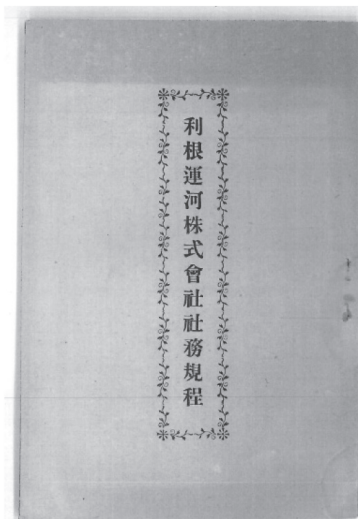 利根運河株式會社社務規程